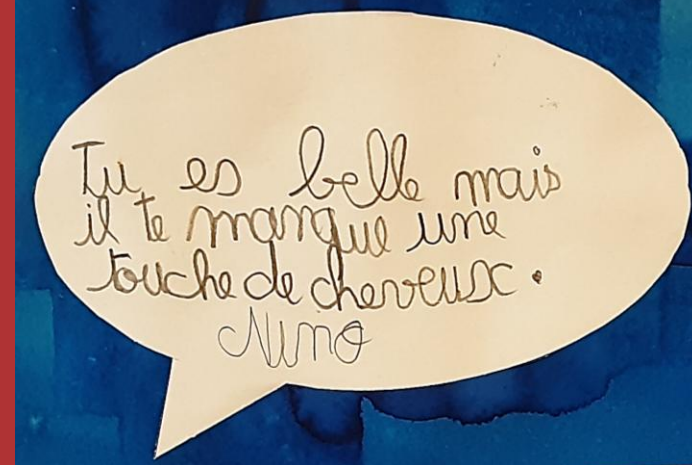 Tu es belle mais
il te manque une
touche de cheveux.
Nino